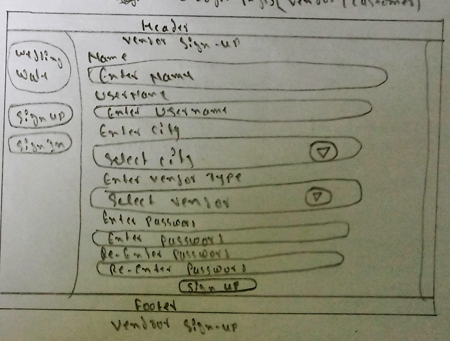 Pages (Vendor / Customer)
Header
Vendor Sign-up
Wedding
Wale
Sign up
Sign In
Name
Enter Name
Username
Enter Username
Enter City
Select City
Enter Vendor Type
Select Vendor
Enter Password
Enter Password
Re-Enter Password
Re-Enter Password
Sign up
Footer
Vendor Sign-up